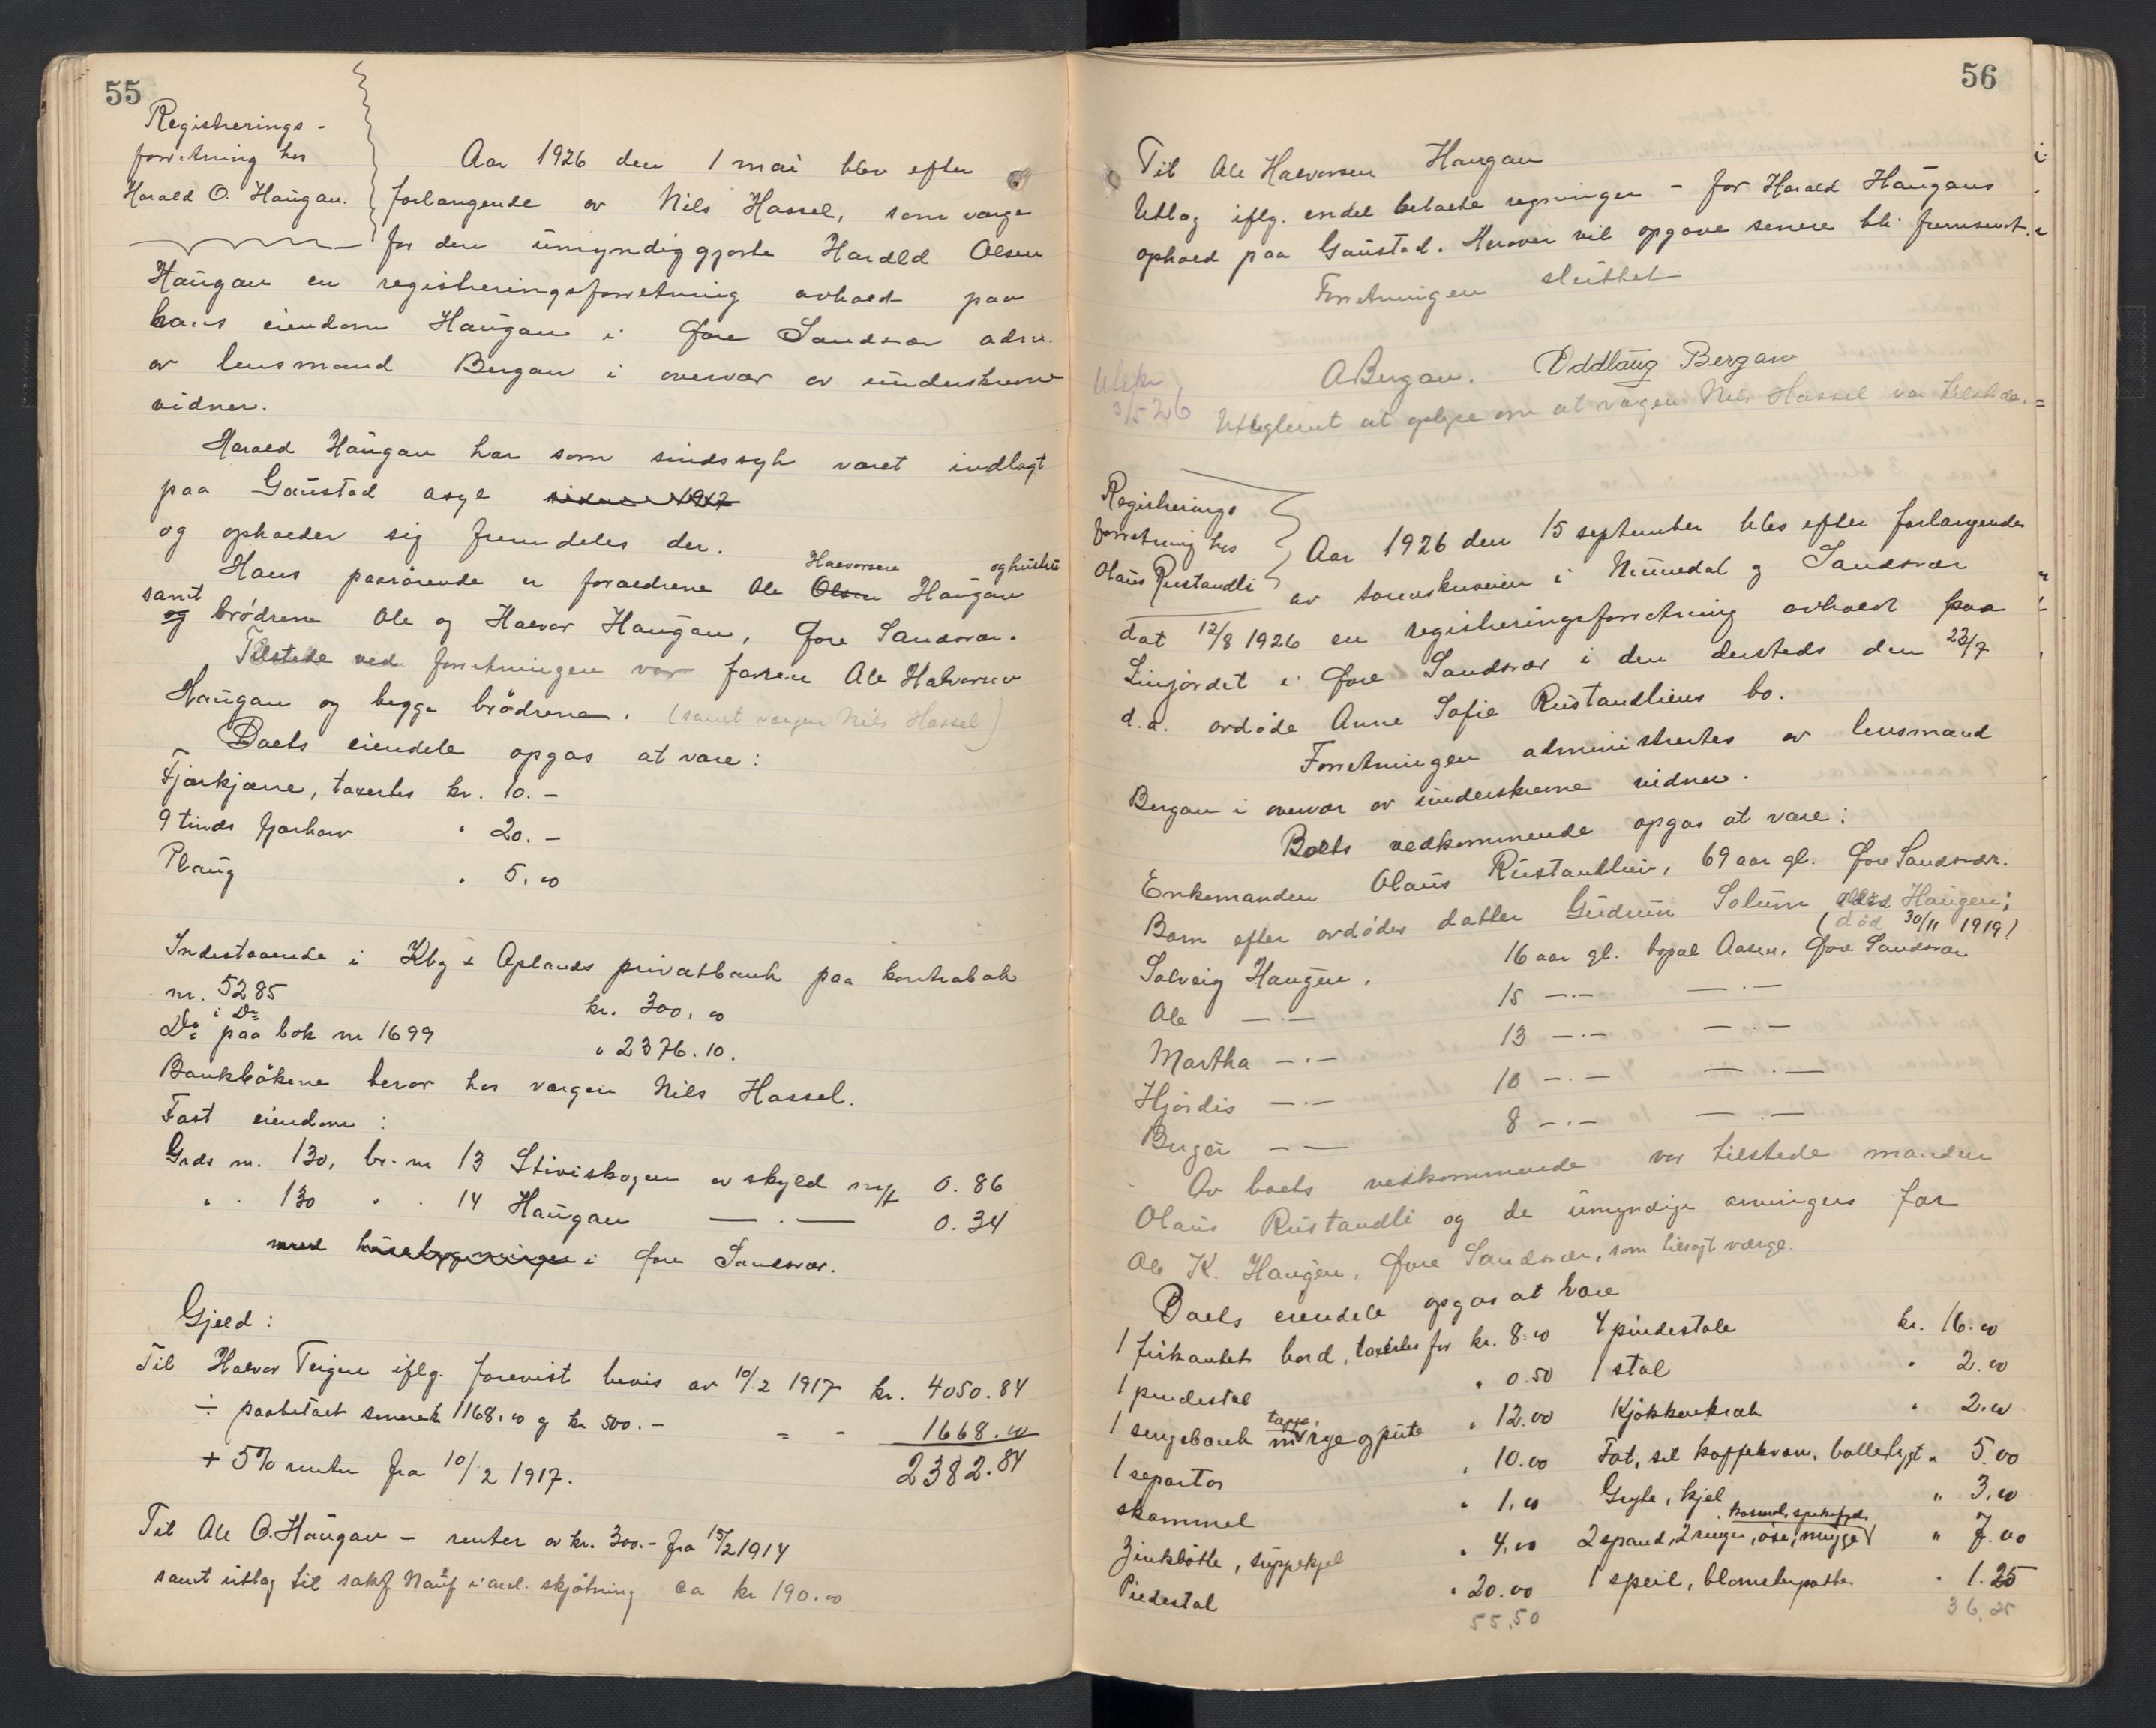 55
Registrerings-
forretning hos
Harald O. Haugan.
Aar 1926 den 1 mai blev efter
forlangende av Nils Hassel, som værge
for den umyndiggjorte Harald Olsen
Haugan en registreringsforretning avholdt paa
hans eiendom Haugan i Øvre Sandsvær adm.
av lensmand Bergan i overvær av underskrevne
vidner.
Harald Haugan har som sindssyk været indlagt
paa Gaustad asyl siden 1917
og opholder sig fremdeles der.
Halvorsen og hustru
Hans paarørende er foraldrene Ole Olsen Haugan
samt
og brødrene Ole og Halvor Haugan, Øvre Sandsvær.
Tilstede ved forretningen var faren Ole Halvorsen
Haugan og begge brødrene. (samt værgen Nils Hassel)
Boets eiendele opgas at være:
Fjærkjærre, taxertes kr. 10.-
9 tinds fjærharv " 20.-
Plaug " 5.00
Indestaaende i Kbg & Oplands privatbank paa kontrabok
nr. 5285 kr. 300.00
Do i Do paa bok nr 1699 " 2376.10.
Bankbøkene beror hos værgen Nils Hassel.
Fast eiendom:
Grds nr. 130, br. nr 13 Stiviskogen av skyld mrk 0.86
" " 130 " " 14 Haugan —.— 0.34
med husebygninger i Øvre Sandsvær.
Gjeld:
Til Halvor Teigen iflg. forevist bevis av 10/2 1917 kr. 4050.84
÷ paabetalt senere kr 1168.00 og kr 500.- = - 1668.00
+ 5% renter fra 10/2 1917. 2382.84
Til Ole O. Haugan - renter av kr. 300.- fra 15/2 1914
samt utlag til sakf. i anl. skjøtning ca kr 190.00
56
Til Ole Halvorsen Haugan
Utlag iflg. endel betalte regninger - for Harald Haugans
ophold paa Gaustad. Herover vil opgave senere bli fremsendt.
Forretningen sluttet
A Bergan. Oddlaug Bergan
Utskr
3/5-26
Utteglemt at oplyse om at vægen Nils Hassel var tilstede.
Registrerings
forretning hos
Olaus Rustandli
Aar 1926 den 15 september blev efter forlangende
av sorenskriveren i Numedal og Sandsvær
dat 12/8 1926 en registreringsforretning avholdt paa
Linjordet i Øvre Sandsvær i den dersteds den 22/7
d.a. avdøde Anne Sofie Rustandliens bo.
Forretningen administrertes av lensmand
Bergan i overvær av underskrevne vidner.
Boets vedkommende opgas at være:
Enkemanden Olaus Rustandlien, 69 aar gl. Øvre Sandsvær.
Barn efter avdødes datter Gudrun Solum Haugen;
(død 30/11 1919)
Solveig Haugen, 16 aar gl. bopæl Aasen, Øvre Sandsvær
Ole —.— 15 —.— —.—
Martha —.— 13 —.— —.—
Hjørdis —.— 10 —.— —.—
Birger —— 8 —.— —.—
Av boets vedkommende var tilstede manden
Olaus Rustandli og de umyndige arvingers far
Ole K. Haugen, Øvre Sandsvær, som tilsagt værge.
Boets eiendele opgas at være
1 firkantet bord, taxertes for kr. 8.00 4 pindestole kr. 16.00
1 pindestol " 0.50 1 stol " 2.00
1 sengebænk m/ rye og pute " 12.00 Kjøkkenkrak " 2.00
1 separtor " 10.00 Fat, sil kaffekvern, bolle, lygt " 5.00
skammel " 1.00 Gryte, kjel " 3.00
Zinkbøtte, suppekjel " 4.00 2 spand, 2 ringer, øse, mugge " 7.00
Piedestal " 20.00 1 speil, blomsterpotte " 1.25
55.50 36.25